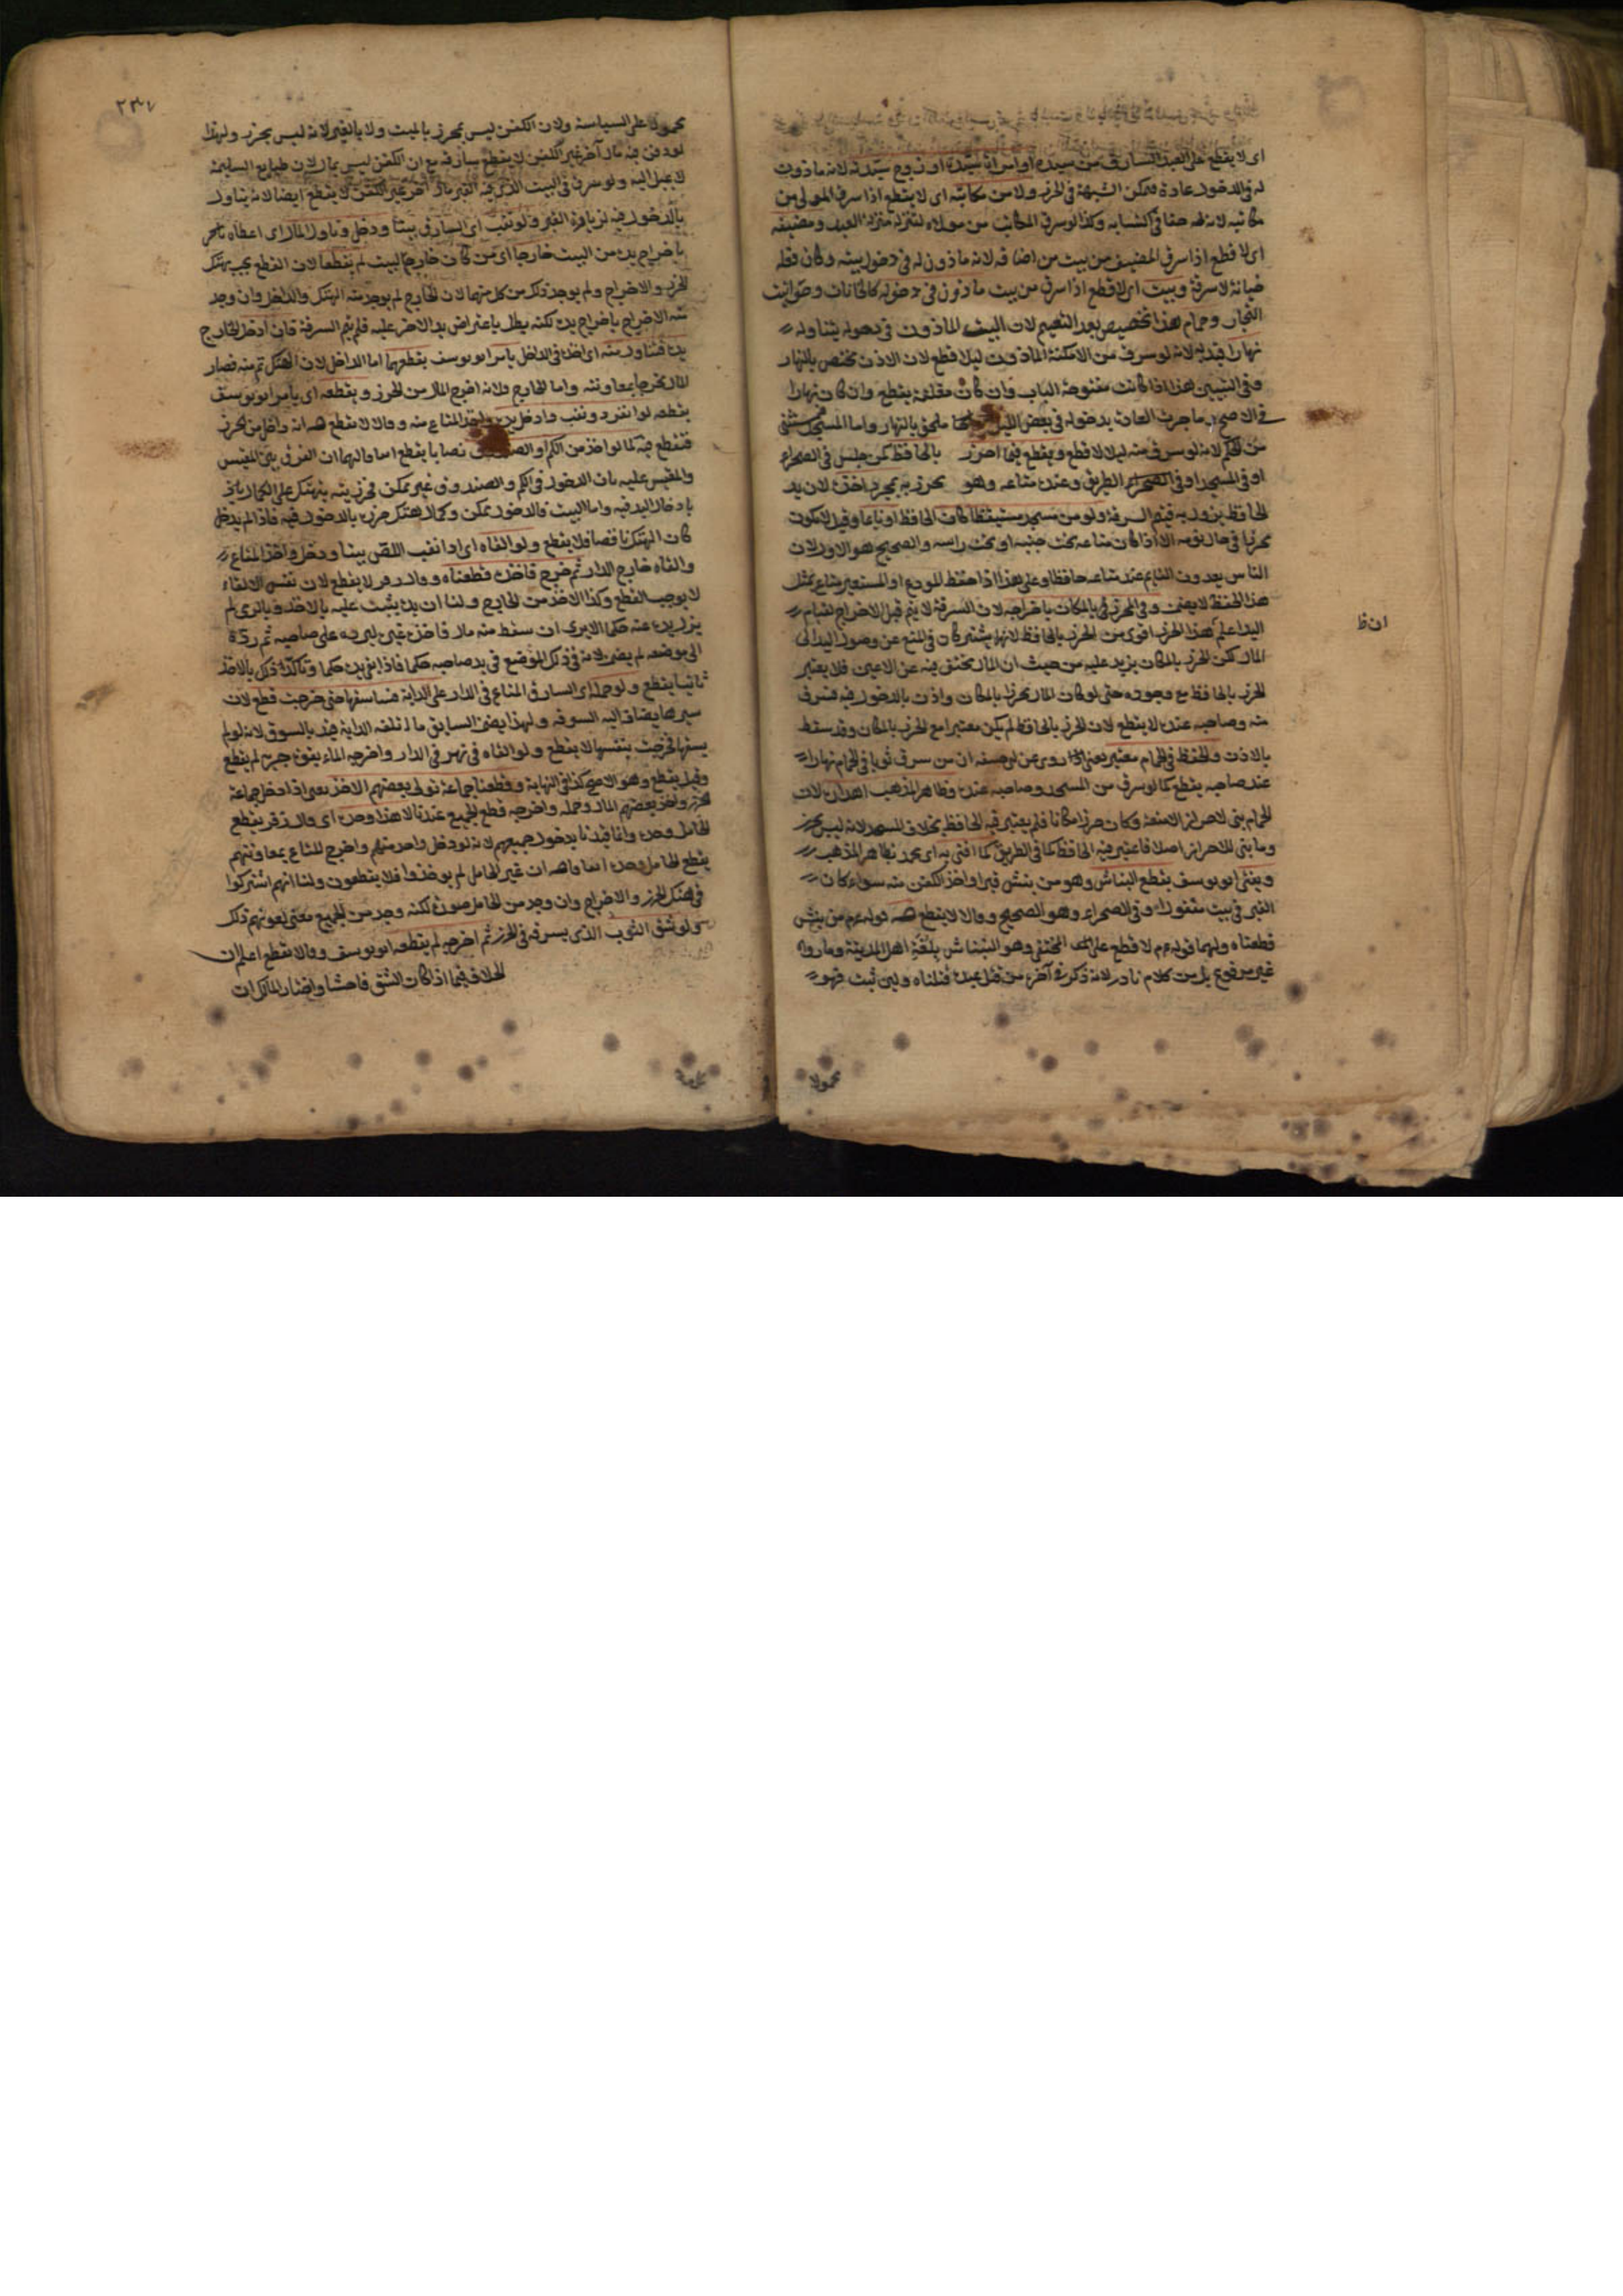 اى لا يقطع على العبد السارق من سيده او امراة سيده او زوج سيدته لانه ماذون
له فى الدخول عادة فتمكن الشبهة فى الحرز ولا من مكاتبه اى لا يقطع اذا سرق المولى من
مكاتبه لان له حقا فى اكسابه وكذا لو سرق المكاتب من مولاه لتنزله منزلة العبد ومضيفه
اى لا قطع اذا سرق الضيف من بيت من اضافه لانه ماذون له فى دخول بيته وكان فعله
خيانة لا سرقة وبيت اى لا قطع اذا سرق من بيت ماذون فى دخوله كالخانات وحوانيت
التجار وحمام هذا تخصيص بعد التعميم لان البيت الماذون فى دخوله يتناوله
نهارا قيد به لانه لو سرق من الامكنة الماذون ليلا قطع لان الاذن مختص بالنهار
وفى التبيين هذا اذا كانت مفتوحة الباب وان كان مغلقة يقطع وان كان نهارا
فى الاصح ما جرت العادة بدخوله فى بعض الليل ملحق بالنهار واما المسجد مستثنى
من الحكم لانه لو سرق منه ليلا لا قطع ويقطع فيما احرز بالحافظ كمن جلس فى الصحراء
او فى المسجد او فى الطريق وعنده متاعه وهو محرز به بمجرد اخذه لان يد
الحافظ يزول به فيتم السرقة ولو من مسجد مستيقظا كان الحافظ او نايما وقيل لا يكون
محرزا فى حال نومه الا اذا كان متاعه تحت جنبه او تحت راسه والصحيح هو الاول لان
الناس يعدون النايم عند متاعه حافظا وعلى هذا اذا حفظ المودع او المستعير متاع بمثل
هذا الحفظ لا يضمن وفى المحرز بالمكان باخراجه لان السرقة لا يتم قبل الاخراج لقيام
اليد اعلم هذا الحرز اقوى من الحرز بالحافظ لانهما يشتركان فى المنع عن وصول اليد الى
المال لكن الحرز بالمكان يزيد عليه من حيث ان المال يختفى فيه عن الاعين فلا يعتبر
الحرز بالحافظ مع وجوده حتى لو كان المال محرزا بالمكان واذن بالدخول فيه فسرق
منه وصاحبه عنده لا يقطع لان الحرز بالحافظ لم يكن معتبرا مع الحرز بالمكان وقد سقط
بالاذن والحفظ فى الحمام معتبر يعنى روى عن ابى حنيفة ان من سرق ثوبا فى الحمام نهارا
عند صاحبه يقطع كما لو سرق من المسجد وصاحبه عنده وظاهر المذهب لان
الحمام بنى لاحراز الامتعة وكان حرزا مكانا فلم يعتبر فيه الحافظ بخلاف المسجد لانه ليس بحرز
وما بنى للاحراز اصلا فاعتبر فيه الحافظ كما فى الطريق كما افتى به اى بظاهر المذهب
ويفتى ابو يوسف بقطع النباش وهو من ينبش قبرا واخذ الكفن منه سواء كان
القبر فى بيت مقفول او فى الصحراء وهو الصحيح وقالا لا يقطع قوله عم من نبش
قطعناه ولهما قوله عم لا قطع على المختفى وهو النباش بلغة اهل المدينة وما رواه
غير مرفوع بل من كلام نادر لانه ذكر فى آخره من قتل عبده قتلناه ولين ثبت فهو
محمولا
ان ظ
٢٣٧
محمولا على السياسة ولان الكفن ليس بمحرز بالميت ولا بالقبر لانه ليس بحرز ولهذا
لو دفن فيه مال آخر غير الكفن لا يقطع سارقه مع ان الكفن ليس بمال لان طبايع السليمة
لا يميل اليه ولو سرق فى البيت الذى فيه القبر مالا آخر غير الكفن لا يقطع ايضا لانه يتاول
بالدخول فيه لزيارة القبر ولو نقب اى السارق بيتا ودخل وناول المال اى اعطاه باخر
باخراج يده من البيت خارجا اى من كان خارج البيت لم يقطعا لان القطع يجب بهتك
الحرز والاخراج ولم يوجد ذلك من كل منهما لان الخارج لم يوجد منه الهتك والداخل وان وجد
منه الاخراج باخراج يده لكنه بطل باعتراض يد الاخر عليه فلم يتم السرقة فان ادخل الخارج
يده فتناول منه اى اخذه فى الداخل يامر ابو يوسف بقطعهما اما الداخل لان الهتك تم منه فصار
المال مخرجا بمعاونته واما الخارج فلانه اخرج المال من الحرز ويقطعه اى يامر ابو يوسف
بقطعه لو انفرد ونقب وادخل يده واخذ المتاع منه وقالا لا يقطع انه داخل من الحرز
فتقطع فيه كما لو اخذ من الكم او نصابا يقطع اما ولهما ان الفرق بين المقيس
والمقيس عليه بان الدخول فى الكم والصندوق غير ممكن
بادخال اليد فيه واما البيت فالدخول ممكن وكمال هتك حرزه بالدخول فيه فاذا لم يدخل
كان الهتك ناقصا فلا يقطع ولو القاه اى اذا نقب اللص بيتا ودخل واخذ المتاع
والقاه خارج الدار ثم خرج فاخذه قطعناه وقال زفر لا يقطع لان نفس الالقاء
لا يوجب القطع وكذا الاخذ من الخارج ولنا ان يده يثبت عليه بالاخذ وبالرمى لم
يزل يده عنه حكما الا يرى ان سقط منه مال فاخذه غيره ليرده على صاحبه ثم رده
الى موضعه لم يضمن لانه فى ذلك الموضع فى يد صاحبه حكما فاذا بقى يده حكما وتاكد ذلك بالاخذ
ثانيا يقطع ولو حمله اى السارق المتاع فى الدار على الدابة فساقها حتى خرجت قطع لان
سيرها يضاف اليه السوقه ولهذا يضمن السايق ما اتلفه الدابة قيد بالسوق لانه لو لم
يسقها فخرجت بنفسها لا يقطع ولو القاه فى نهر فى الدار واخرجه الماء بقوة جريه لم يقطع
وقيل يقطع وهو الاصح كذا فى النهاية وقطعنا جماعة تولى بعضهم الاخذ يعنى اذا دخل جماعة
الحرز واخذ بعضهم المال وحمله واخرجه قطع الجميع عندنا لا هذا وحده اى وقال زفر يقطع
الحامل وحده وانما قيدنا بدخول جميعهم لانه لو دخل واحد منهم واخرج المتاع بمعاونتهم
يقطع الحامل وحده ان غير الحامل لم يوخذوا فلا يقطعون ولنا انهم اشتركوا
فى هتك الحرز والاخراج وان وجد من الحامل صورة لكنه وجد من الجميع معنى لعونهم ذلك
ولو شق الثوب الذى يسرقه فى الحرز ثم اخرجه لم يقطعه ابو يوسف وقالا يقطع اعلم ان
الخلاف فيما اذا كان الشق فاحشا واختار المالك ان